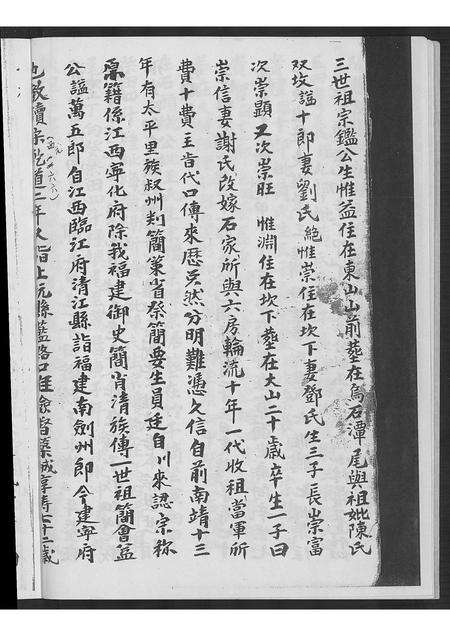 三世祖宗鑑公生惟益住在東山山前塟在烏石潭尾與祖妣陳氏
双坟謚十郎妻劉氏絶惟崇住在坎下妻鄧氏生三子長崇富
次崇顯又次崇旺 惟淵住在坎下塟在大山二十歲卒生一子曰
崇信妻謝氏改嫁石家所與六房輪流十年一代收祖當軍所
費十費主皆代口傳來歷炳然分明難憑久信自前南靖十三
年有太平里簇叔州判簡策省祭簡要生員廷自川來認宗称
原籍係江西寧化府除我福建御史簡肖清族傳一世祖簡會益
公謚萬五郎自江西臨江府清江縣詣福建南劍州即今建寧府
也教讀宋乾道二年又詣上元縣藍路口任教督築城享壽六十二歲